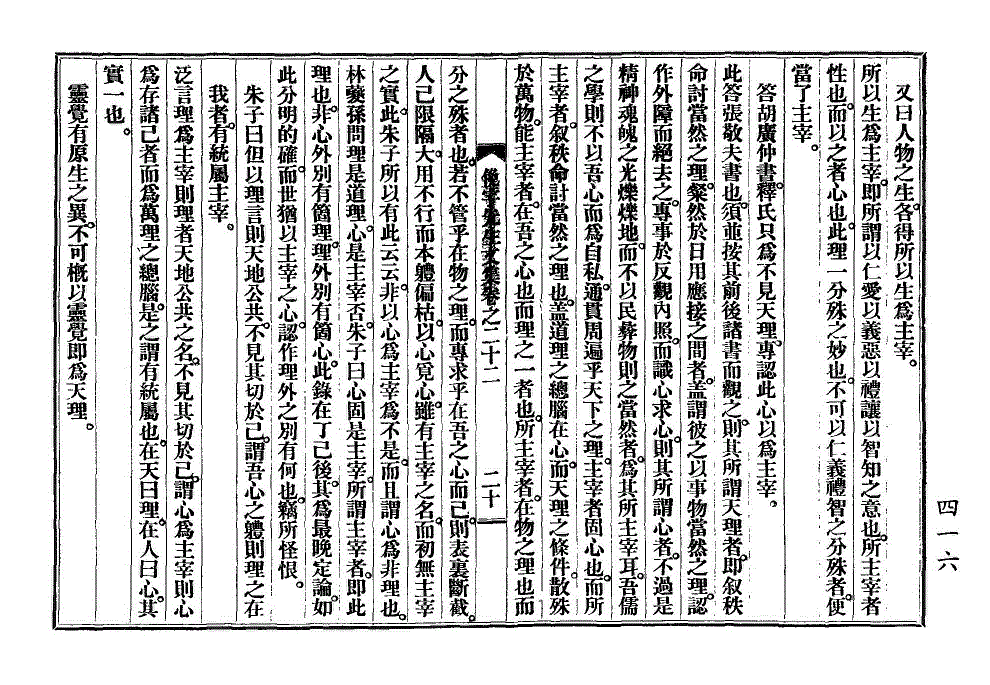 又曰人物之生。各得所以生爲主宰。
所以生爲主宰。卽所謂以仁愛以義惡以禮讓以智知之意也。所主宰者
性也。而以之者心也。此理一分殊之妙也。不可以仁義禮智之分殊者。便
當了主宰。
答胡廣仲書。釋氏只爲不見天理。專認此心以爲主宰。
此答張敬夫書也。須並按其前後諸書而觀之。則其所謂天理者。卽叙秩
命討當然之理。粲然於日用應接之間者。盖謂彼之以事物當然之理。認
作外障而絕去之。專事於反觀內照。而識心求心。則其所謂心者。不過是
精神魂魄之光爍爍地。而不以民彛物則之當然者。爲其所主宰耳。吾儒
之學則不以吾心而爲自私。通貫周遍乎天下之理。主宰者固心也。而所
主宰者。叙秩命討當然之理也。盖道理之總腦在心。而天理之條件散殊
於萬物。能主宰者。在吾之心也而理之一者也。所主宰者。在物之理也而
先生文集卷之二十二
二十
分之殊者也。若不管乎在物之理。而專求乎在吾之心而已。則表裏斷截。
人己限隔。大用不行而本體偏枯。以心覓心。雖有主宰之名。而初無主宰
之實。此朱子所以有此云云。非以心爲主宰爲不是。而且謂心爲非理也。
林夔孫問理是道理。心是主宰否。朱子曰心固是主宰。所謂主宰者。卽此
理也。非心外別有箇理。理外別有箇心。此錄在丁巳後。其爲最晚定論。如
此分明的確。而世猶以主宰之心。認作理外之別有何也。竊所怪恨。
朱子曰但以理言則天地公共。不見其切於己。謂吾心之體則理之在
我者。有統屬主宰。
泛言理爲主宰則理者天地公共之名。不見其切於己。謂心爲主宰則心
爲存諸己者而爲萬理之總腦。是之謂有統屬也。在天曰理。在人曰心。其
實一也。
靈覺有原生之異。不可槪以靈覺卽爲天理。
四一六